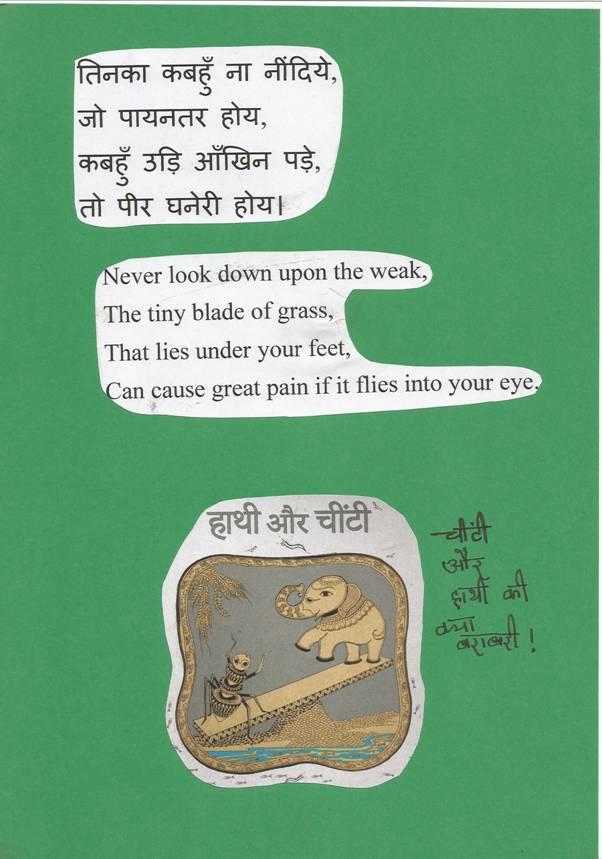 तिनका कबहुँ ना नींदिये,
जो पायनतर होय,
कबहुँ उड़ि आँखिन पड़े,
तो पीर घनेरी होय।
Never look down upon the weak,
The tiny blade of grass,
That lies under your feet,
Can cause great pain if it flies into your eye.
हाथी और चींटी
चींटी
और
हाथी की
क्या
बराबरी !